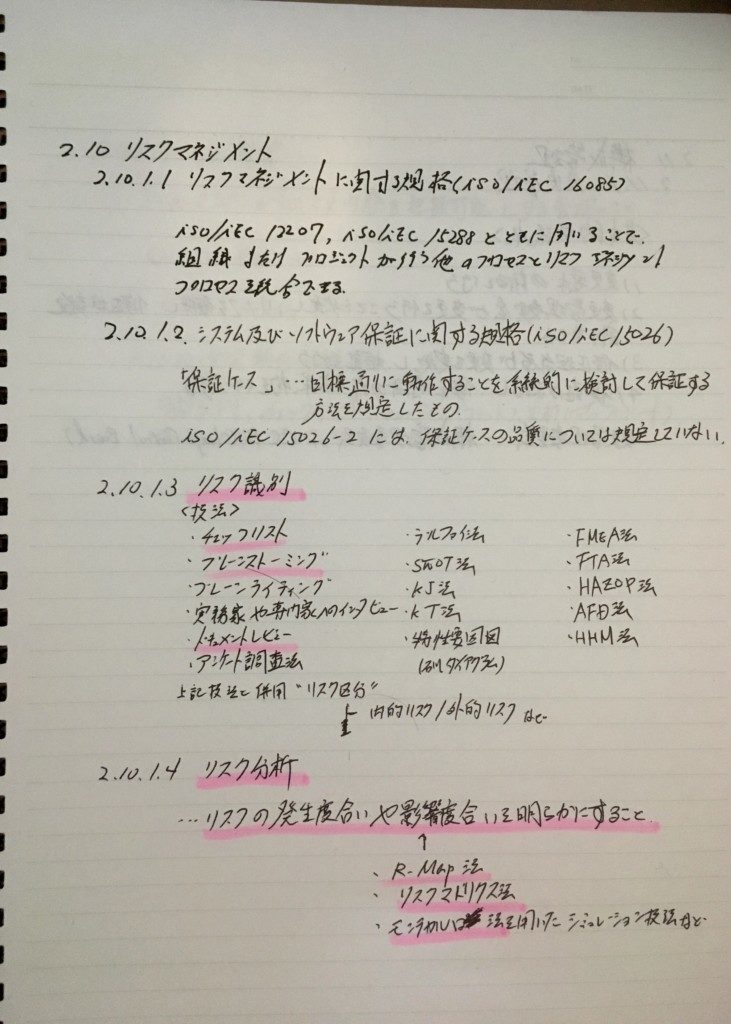 2.10 リスクマネジメント
2.10.1.1 リスクマネジメントに関する規格(ISO/IEC 16085)
ISO/IEC 12207, ISO/IEC 15288とともに用いることで、
組織またはプロジェクトが行う他のプロセスとリスクマネジメント
プロセスを統合できる。
2.10.1.2. システム及びソフトウェア保証に関する規格(ISO/IEC 15026)
「保証ケース」…目標通りに動作することを系統的に検討して保証する
方法を規定したもの.
ISO/IEC 15026-2 には、保証ケースの品質については規定していない.
2.10.1.3 リスク識別
<技法>
・チェックリスト ・デルファイ法 ・FMEA法
・ブレーンストーミング ・SWOT法 ・FTA法
・ブレーンライティング ・KJ法 ・HAZOP法
・実務家や専門家へのインタビュー ・KT法 ・AFD法
・ドキュメントレビュー ・特性要因図 ・HHM法
・アンケート調査法 (石川ダイヤグラム)
上記技法と併用 "リスク区分"
内的リスク/外的リスク など
2.10.1.4 リスク分析
…リスクの発生度合いや影響度合いを明らかにすること.
↑
・R-Map法
・リスクマトリクス法
・モンテカルロ法を用いたシミュレーション技法など